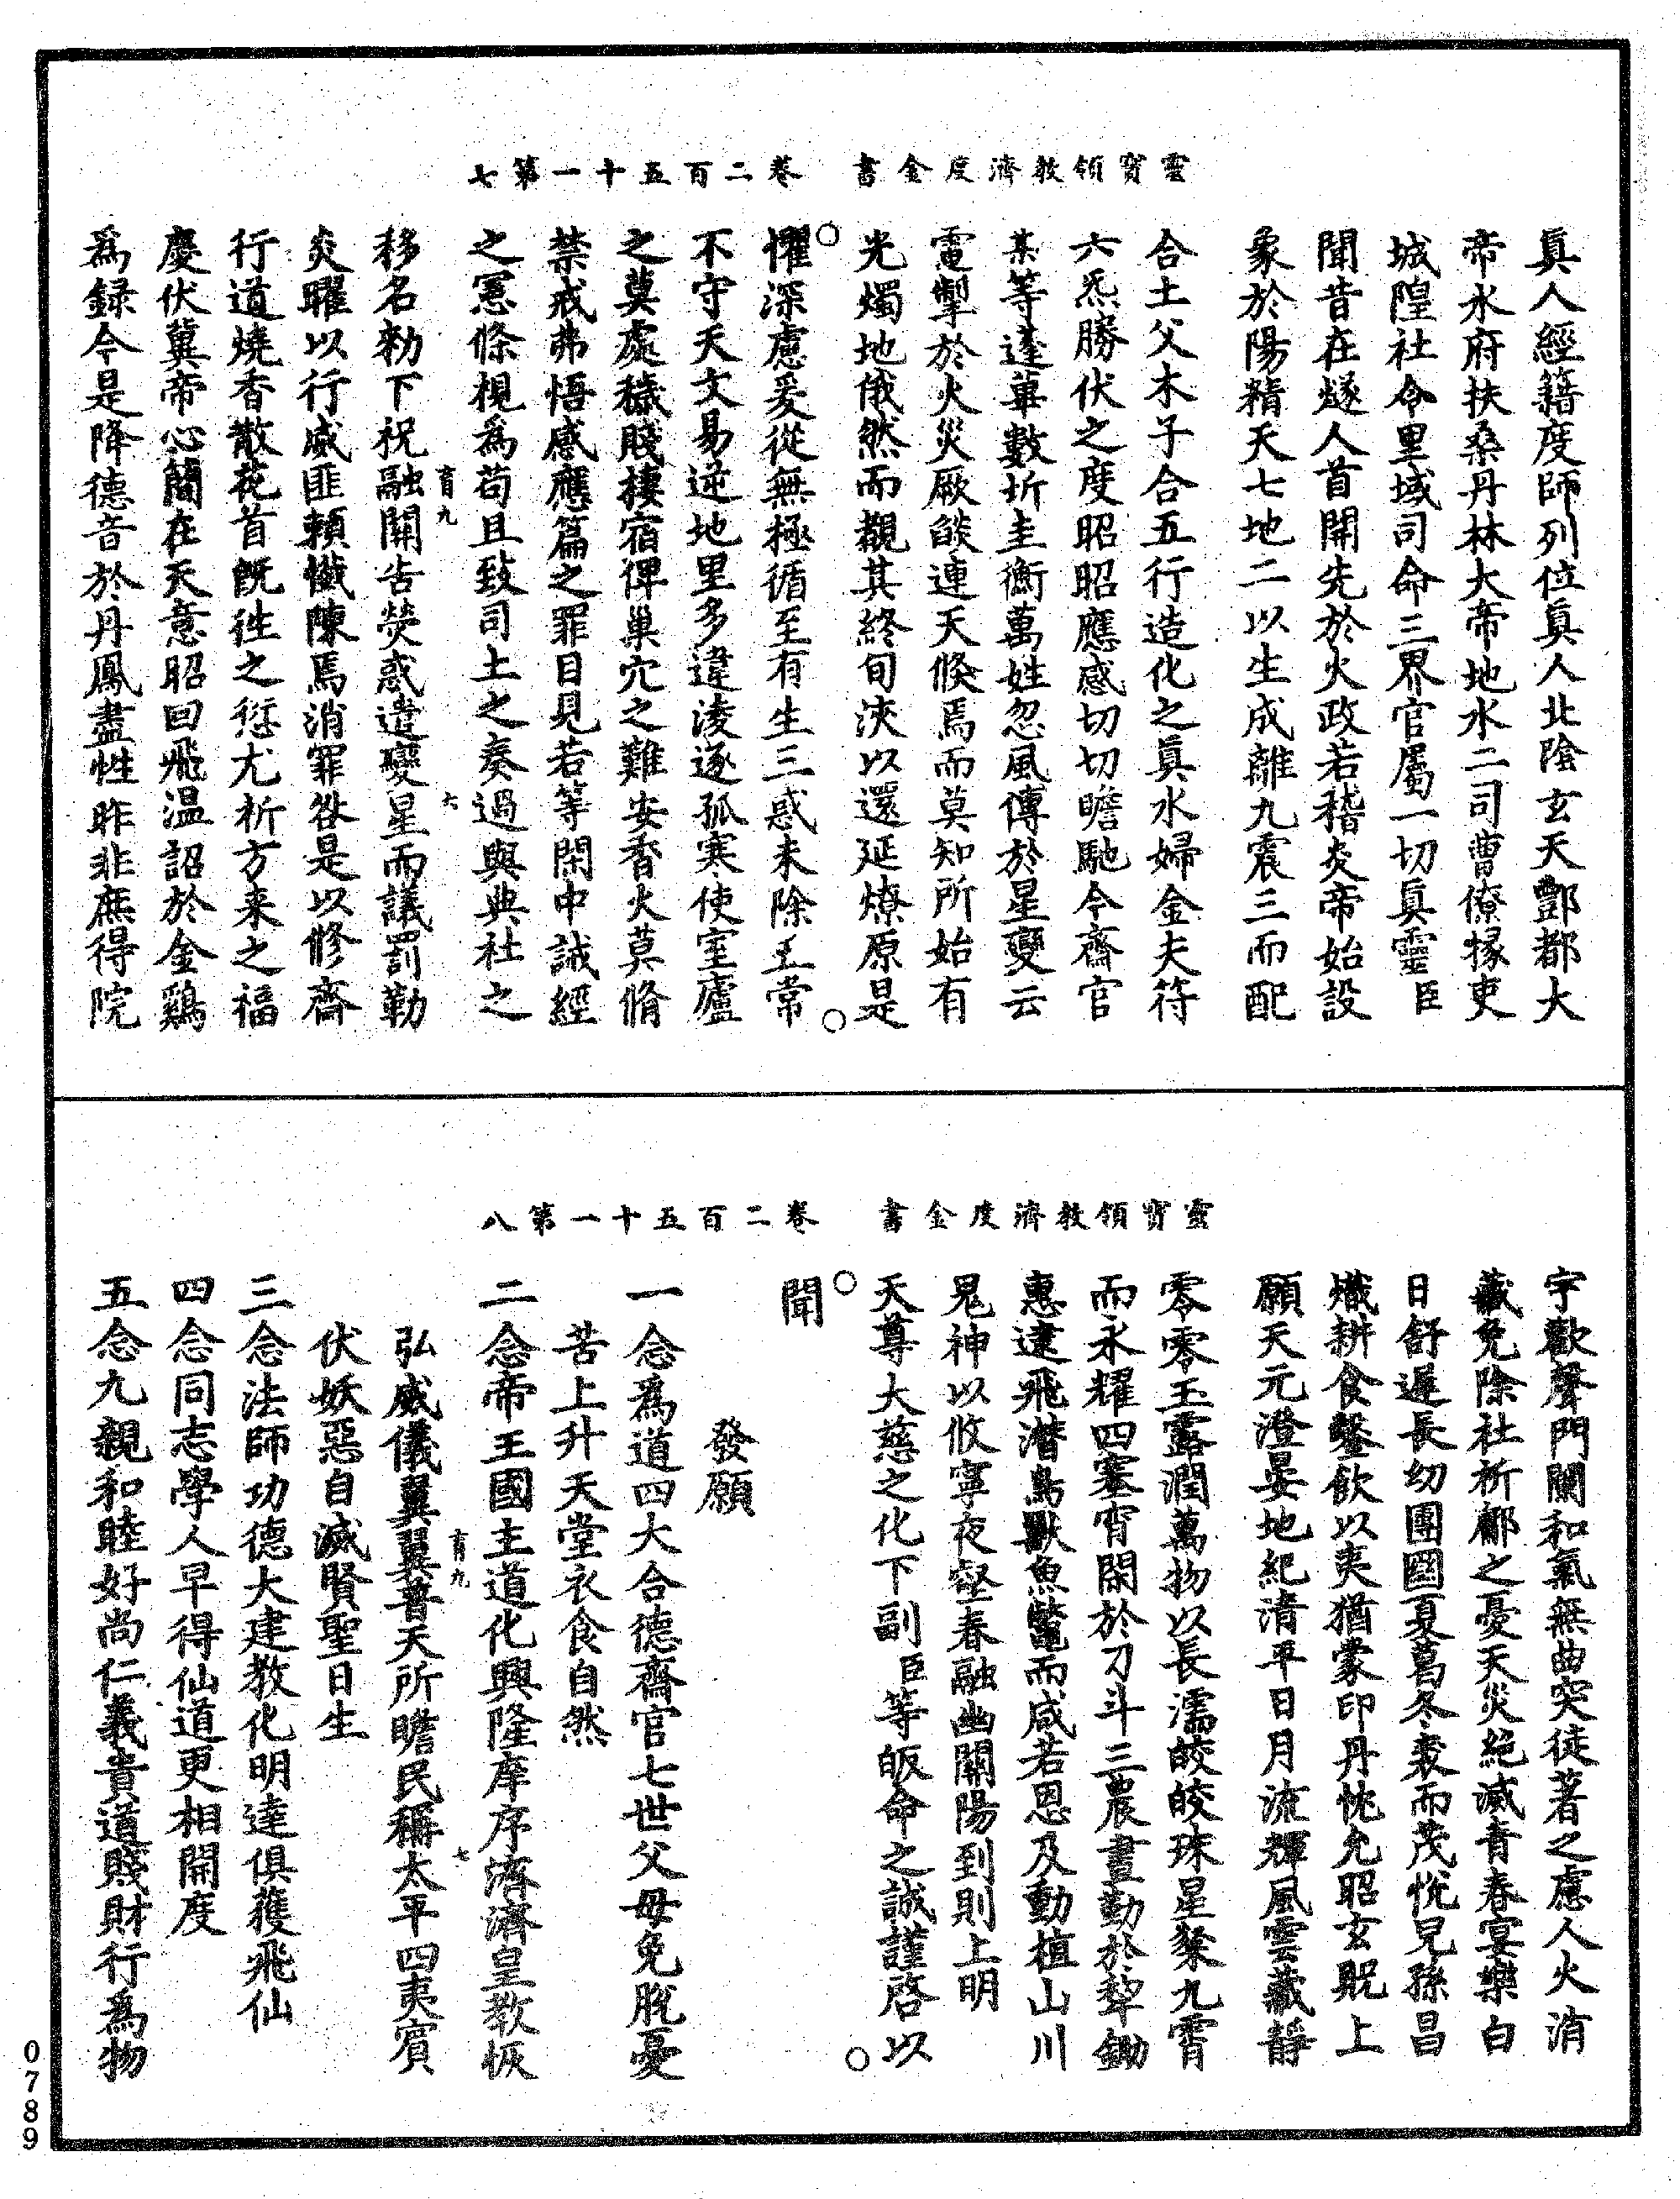 靈寶領教濟度金書　卷二百五十一第七
眞人經籍度師列位眞人北陰玄天酆都大
帝水府扶桑丹林大帝地水二司曹僚掾吏
城隍社令里域司命三界官屬一切眞靈臣
聞昔在燧人首開先於火政若稽炎帝始設
象於陽精天七地二以生成離九震三而配
合土父木子合五行造化之眞水婦金夫符
六炁勝伏之度昭昭應感切切瞻馳今齋官
某等蓬蓽數圻圭衡萬姓忽風傳於星變云
電掣於火災厥燄連天倏焉而莫知所始有
光燭地俄然而覩其終旬浹以還延燎原是
懼深慮爰從無極循至有生三惑未除五常
不守天文易逆地里多違淩逐孤寒使室廬
之莫處穢賤棲宿俾巢穴之難安香火莫脩
禁戒弗悟感應篇之罪目見若等閑中誡經
之憲條視爲苟且致司土之奏過與典社之
移名勑下祝融關告熒惑遣變星而議罰勒
炎曜以行威匪賴懺陳焉消罪咎是以修齋
行道燒香散花首旣徃之愆尤祈方来之福
慶伏冀帝心簡在天意昭回飛温詔於金鷄
爲録今是降德音於丹鳳盡性昨非庶得院
育九
六
靈寶領教濟度金書　卷二百五十一第八
宇歡聲門闌和氣無曲突徒著之慮人火消
藏免除社祈鄘之憂天災絶滅青春宴樂白
日舒遲長幼團圝夏葛冬裘而茂悅兒孫昌
熾耕食鑿飲以夷猶蒙印丹忱允昭玄貺上
願天元澄晏地紀清平日月流輝風雲藏靜
零零玉露潤萬物以長濡皎皎珠星粲九霄
而永耀四塞宵閑於刀斗三農晝勤於犂鋤
惠逮飛潛鳥獸魚鼈而咸若恩及動植山川
鬼神以攸寧夜壑春融幽關陽到則上明
天尊大慈之化下副臣等皈命之誠謹啓以
聞
發願
一念爲道四大合德齋官七世父毋免脫憂
苦上升天堂衣食自然
二念帝王國主道化興隆庠序濟濟皇教恢
弘威儀翼翼普天所瞻民稱太平四夷賓
伏妖惡自滅賢聖日生
三念法師功德大建教化明達俱獲飛仙
四念同志學人早得仙道更相開度
五念九親和睦好尚仁義貴道賤財行爲物
育九
七
0789